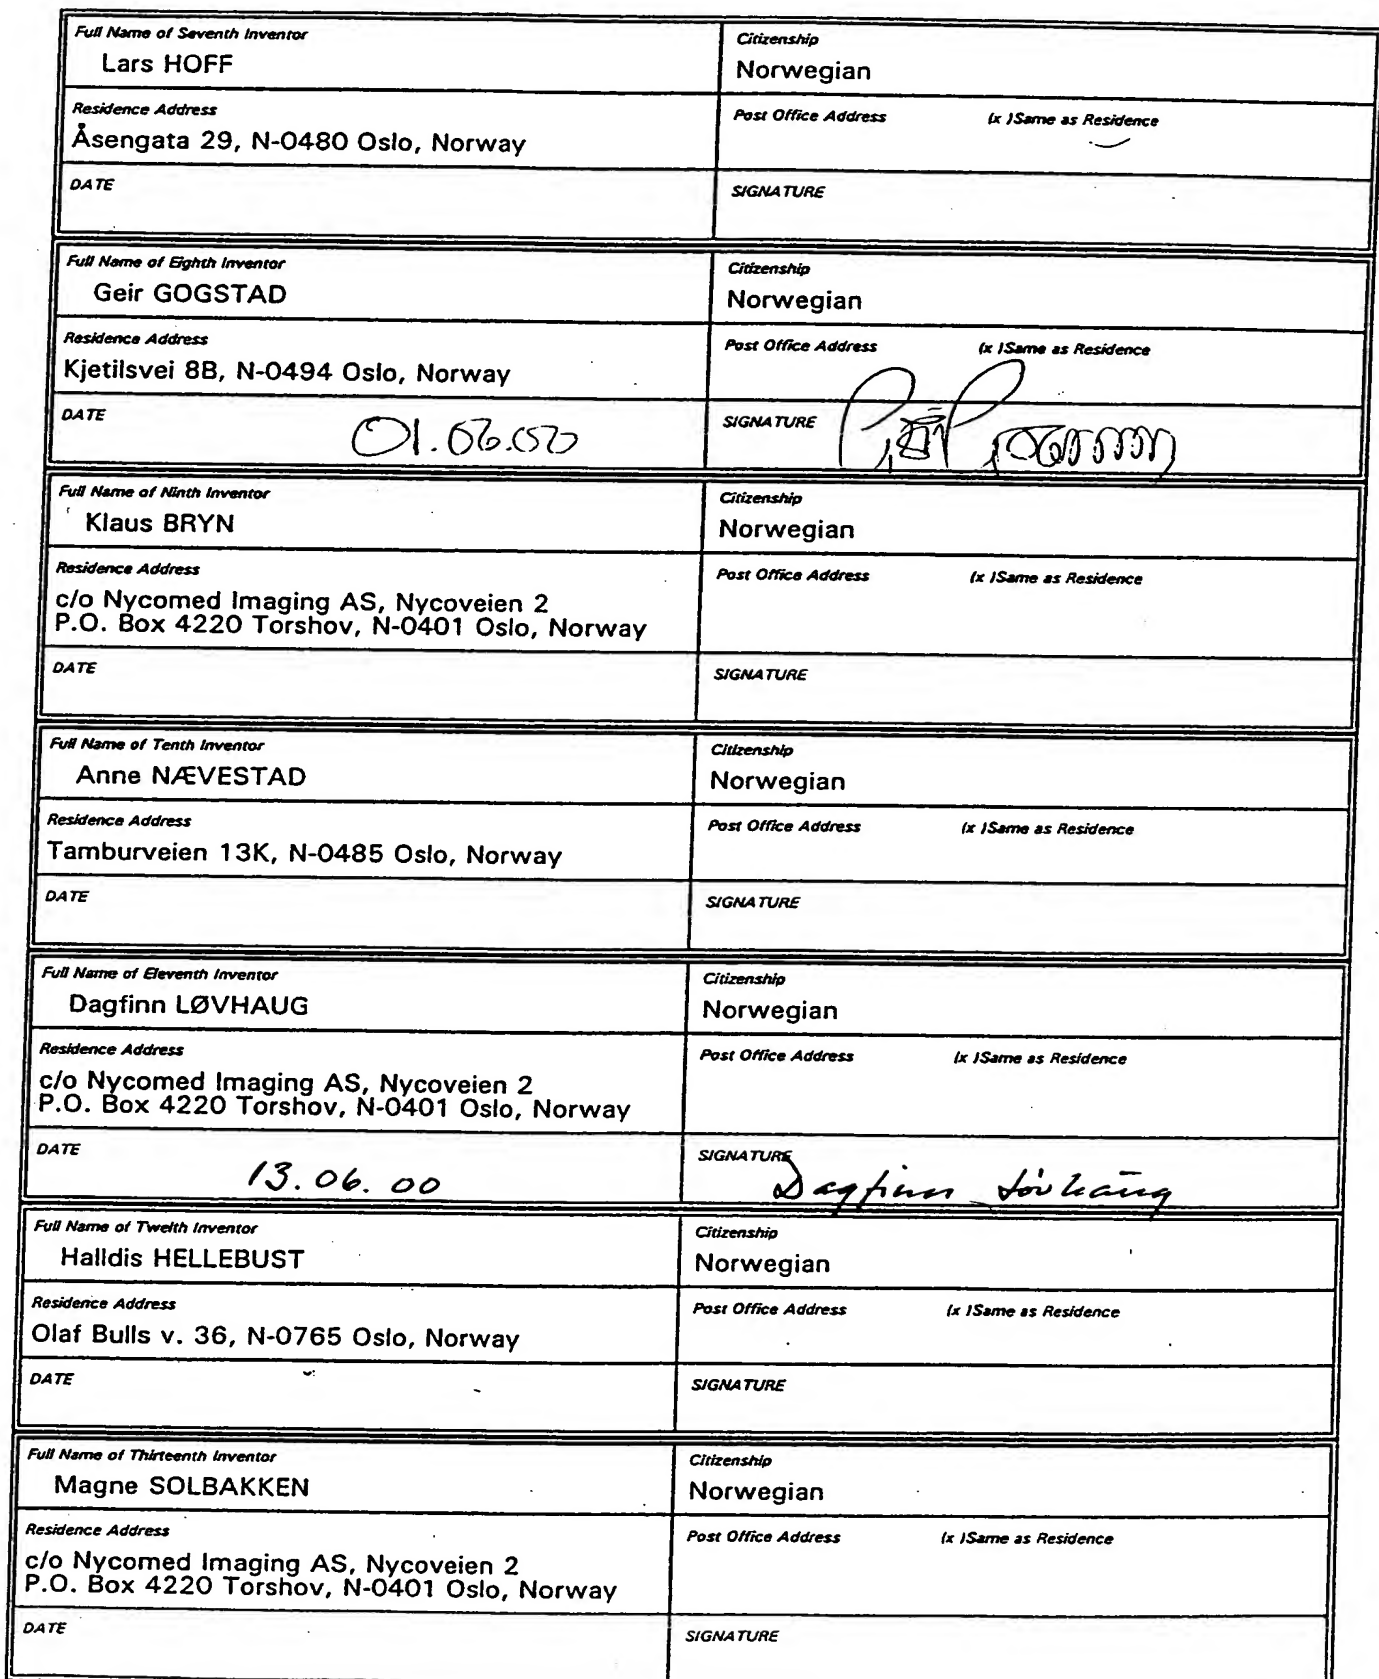 Full Name of Seventh Inventor
Lars HOFF
Citizenship
Norwegian
Residence Address
Åsengata 29, N-0480 Oslo, Norway
Post Office Address (x )Same as Residence
DATE
SIGNATURE
Full Name of Eighth Inventor
Geir GOGSTAD
Citizenship
Norwegian
Residence Address
Kjetilsvei 8B, N-0494 Oslo, Norway
Post Office Address (x )Same as Residence
DATE
01.06.00
SIGNATURE
Full Name of Ninth Inventor
Klaus BRYN
Citizenship
Norwegian
Residence Address
c/o Nycomed Imaging AS, Nycoveien 2
P.O. Box 4220 Torshov, N-0401 Oslo, Norway
Post Office Address (x )Same as Residence
DATE
SIGNATURE
Full Name of Tenth Inventor
Anne NÆVESTAD
Citizenship
Norwegian
Residence Address
Tamburveien 13K, N-0485 Oslo, Norway
Post Office Address (x )Same as Residence
DATE
SIGNATURE
Full Name of Eleventh Inventor
Dagfinn LØVHAUG
Citizenship
Norwegian
Residence Address
c/o Nycomed Imaging AS, Nycoveien 2
P.O. Box 4220 Torshov, N-0401 Oslo, Norway
Post Office Address (x )Same as Residence
DATE
13.06.00
SIGNATURE
Dagfinn Løvhaug
Full Name of Twelth Inventor
Halldis HELLEBUST
Citizenship
Norwegian
Residence Address
Olaf Bulls v. 36, N-0765 Oslo, Norway
Post Office Address (x )Same as Residence
DATE
SIGNATURE
Full Name of Thirteenth Inventor
Magne SOLBAKKEN
Citizenship
Norwegian
Residence Address
c/o Nycomed Imaging AS, Nycoveien 2
P.O. Box 4220 Torshov, N-0401 Oslo, Norway
Post Office Address (x )Same as Residence
DATE
SIGNATURE